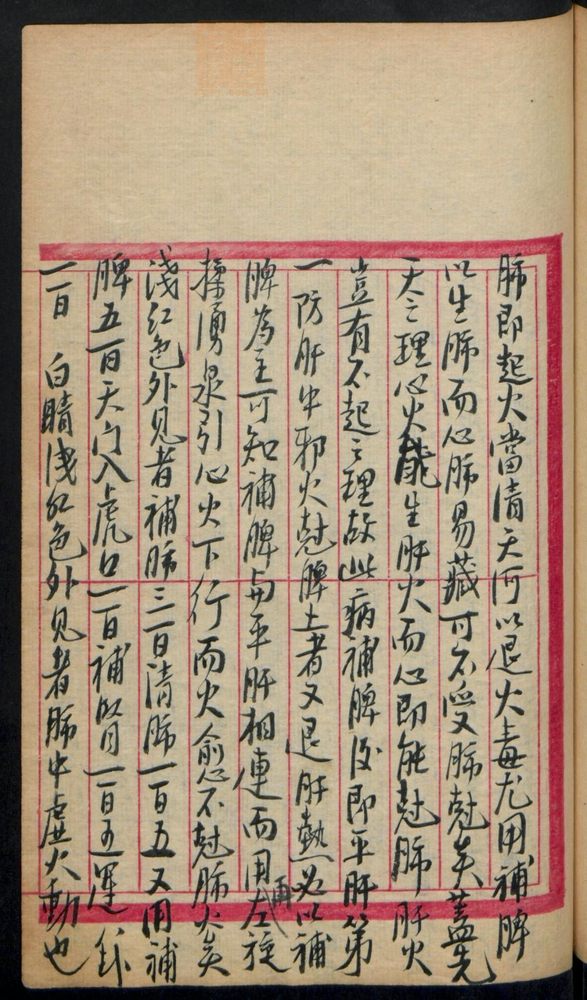 肺即起火當清天河以退火毒尤用補脾
以生肺而心肺易藏可不受肺尅矣蓋先
天之理心火能生肝火而心即能尅肺肝火
豈有不起之理故此病補脾後即平肝第
一防肝中邪火尅脾土者又退肝熱必以補
脾為主可知補脾與平肝相連而用再左旋
揉湧泉引心火下行而火愈不尅肺火矣
淺紅色外見者補肺三百清肺一百五又用補
脾五百天門入虎口一百補腎一百五運八卦
一百 白睛淺紅色外見者肺中虛火動也